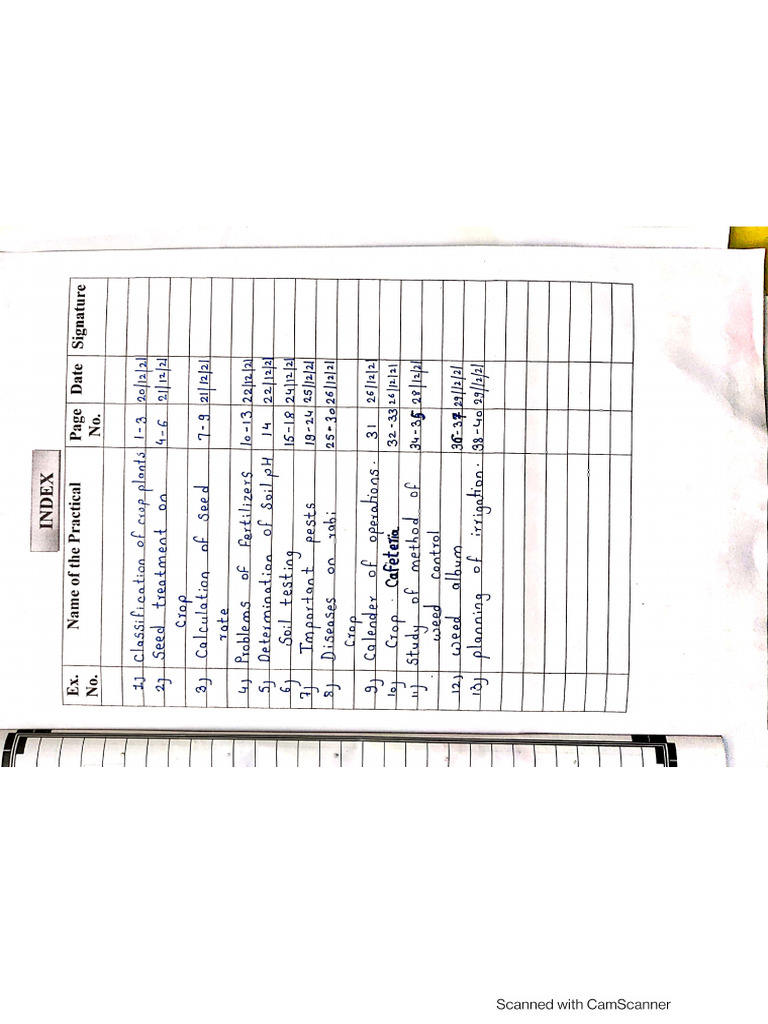 INDEX
Ex. No. Name of the Practical Page No. Date Signature
1) Classification of crop plants 1-3 20/12/21
2) Seed treatment on 4-6 21/12/21
crop
3) Calculation of seed 7-9 21/12/21
rate
4) Problems of Fertilizers 10-13 22/12/21
5) Determination of Soil pH 14 22/12/21
6) Soil testing 15-18 24/12/21
7) Important pests 19-24 25/12/21
8) Diseases on rabi 25-30 26/12/21
crop
9) Calender of operations. 31 26/12/21
10) Crop. Cafeteria 32-33 26/12/21
11) Study of method of 34-35 28/12/21
weed control
12) weed album 36-37 29/12/21
13) planning of irrigation. 38-40 29/12/21
Scanned with CamScanner